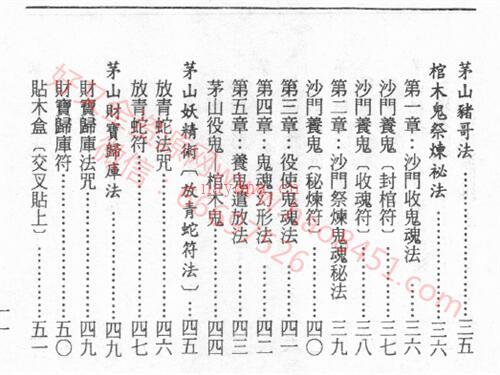 茅山豬哥法……………三五
棺木鬼祭煉祕法……………三六
第一章：沙門收鬼魂法……………三六
沙門養鬼〔封棺符〕……………三七
沙門養鬼〔收魂符〕……………三八
第二章：沙門祭煉鬼魂秘法……………三九
沙門養鬼〔秘煉符〕……………四〇
第三章：役使鬼魂法……………四一
第四章：鬼魂幻形法……………四二
第五章：養鬼遣放法……………四三
茅山役鬼〔棺木鬼〕……………四四
茅山妖精術〔放青蛇符法〕……………四五
放青蛇法咒……………四六
放青蛇符……………四七
茅山財寶歸庫法……………四九
財寶歸庫法咒……………四九
財寶歸庫符……………五〇
貼木盒〔交叉貼上〕……………五一
一一